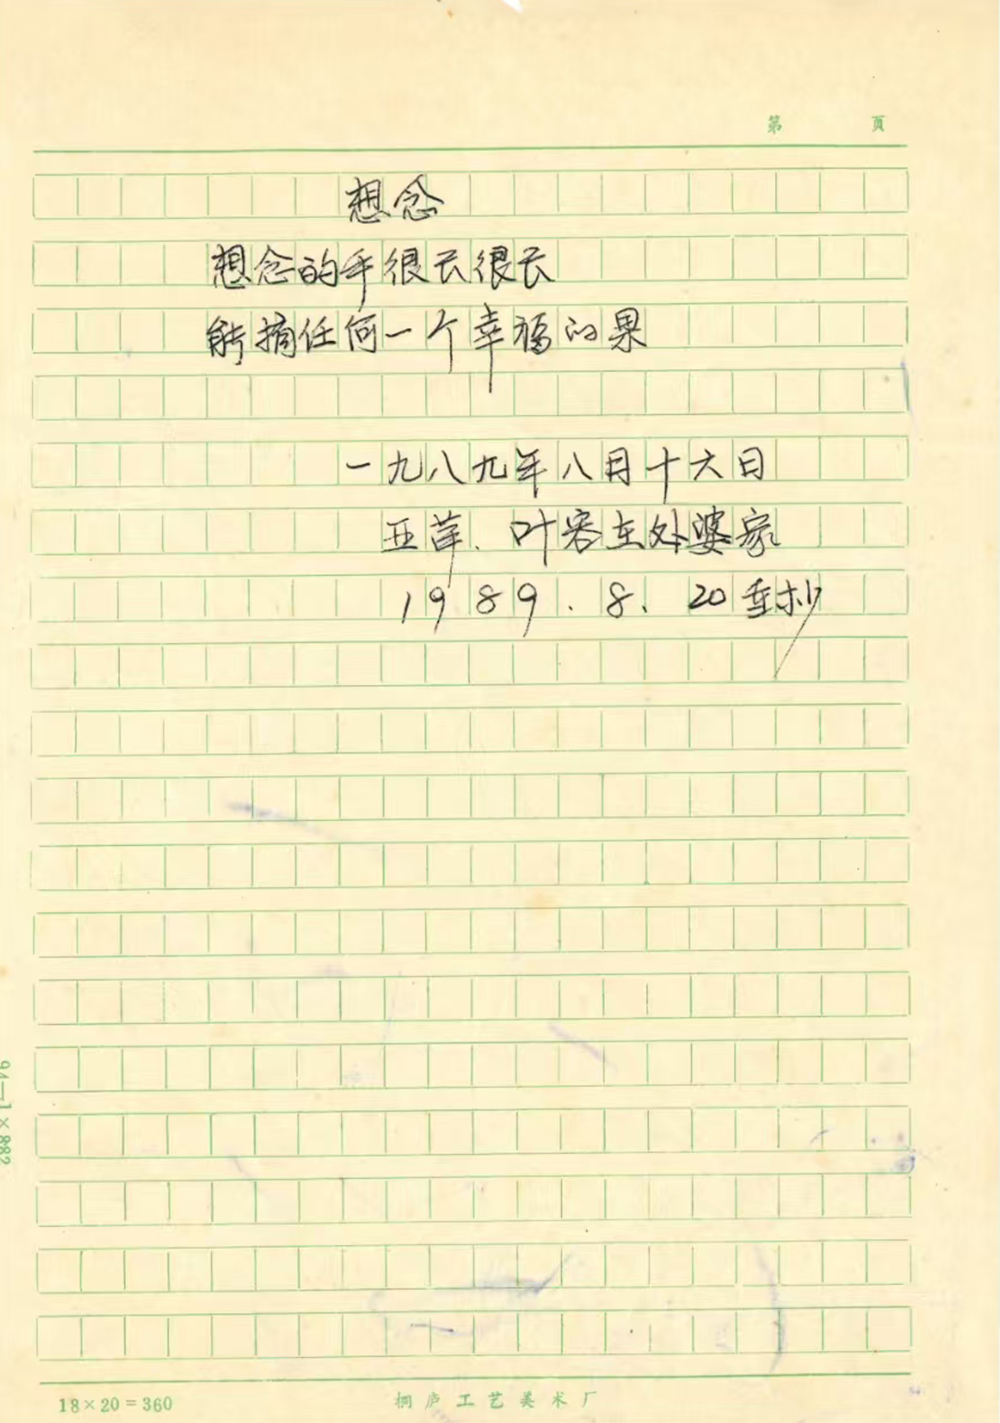 第 页
想念
想念的手很长很长
能摘任何一个幸福的果
一九八九年八月十六日
亚萍、叶容在外婆家
1989.8.20重抄
18×20=360
桐庐工艺美术厂